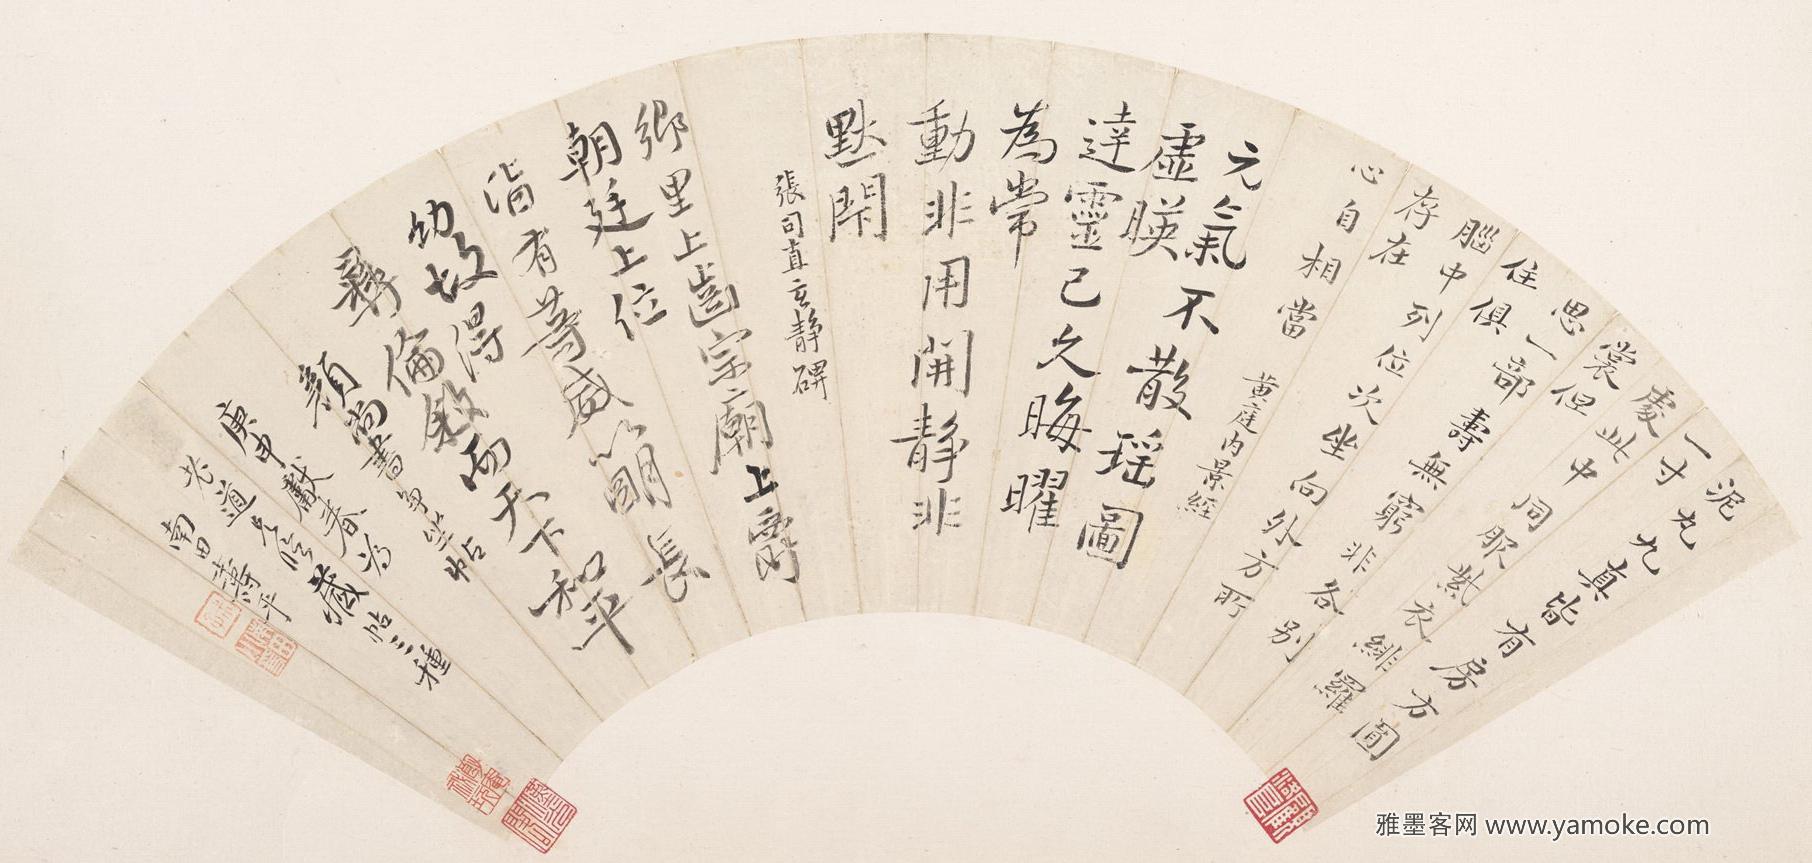 泥丸九真皆有房方圓
一寸
處此中同服紫衣緋羅
裳但
思一部壽無窮非各別
住俱
腦中列位次坐向外方所
存在
心自相當
黃庭內景經
元氣不散瑶圖
虛暎
達靈己久晦曜
為常
動非用開静非
默閇
張司直玄静碑
鄉里上齒宗廟上爵
朝廷上位
皆有等威以明長
幼故得
彝倫敘而天下和平
顏尚書争坐帖
庚申獻春為
老道長臨藏帖三種
南田壽平
雅墨客网 www.yamoke.com